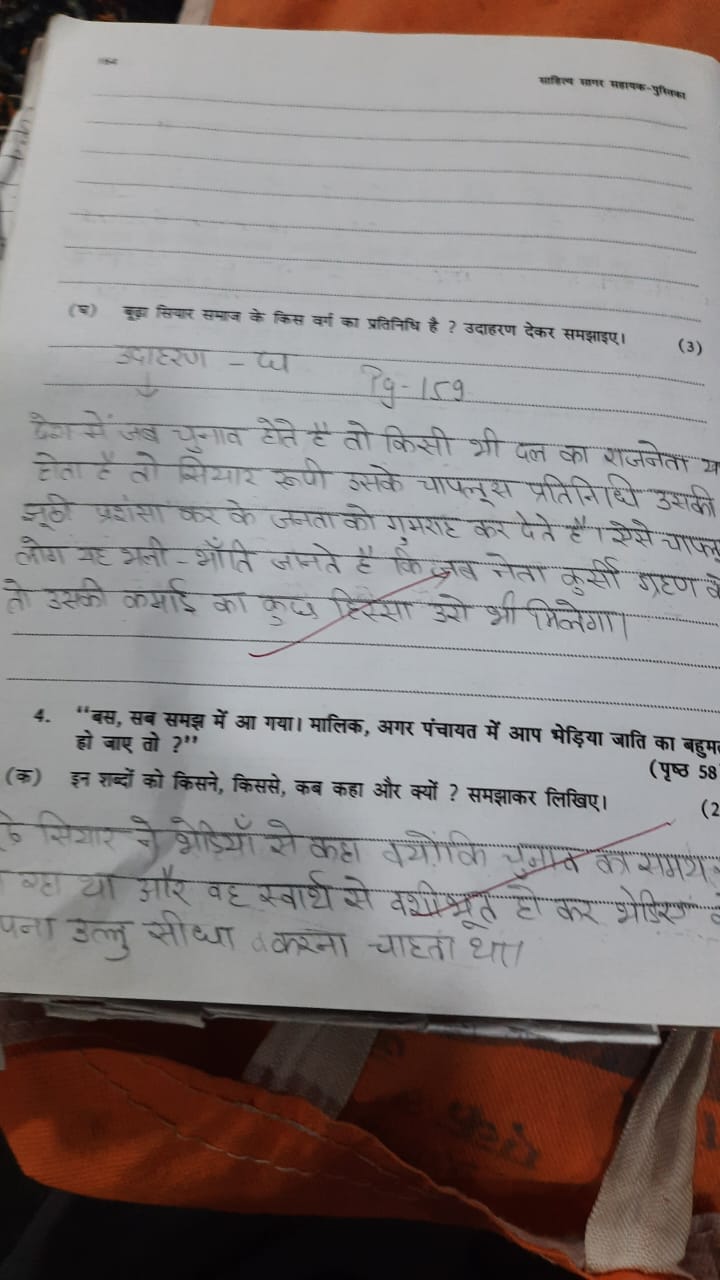 164
साहित्य सागर सहायक-पुस्तिका
(घ) बूढ़ा सियार समाज के किस वर्ग का प्रतिनिधि है ? उदाहरण देकर समझाइए। (3)
उदाहरण - घ Pg-159
देश में जब चुनाव होते है तो किसी भी दल का राजनेता
होता है तो सियार रूपी उसके चापलूस प्रतिनिधि उसकी
झूठी प्रशंसा कर के जनता को गुमराह कर देते है। ऐसे
लोग यह भली-भाँति जानते है कि जब नेता कुर्सी ग्रहण
तो उसकी कमाई का कुछ हिस्सा उसे भी मिलेगा।
4. “बस, सब समझ में आ गया। मालिक, अगर पंचायत में आप भेड़िया जाति का
हो जाए तो ?” (पृष्ठ 58
(क) इन शब्दों को किसने, किससे, कब कहा और क्यों ? समझाकर लिखिए। (2
सियार ने भेडियाँ से कहा क्योंकि चुनाव का समय
रहा था और वह स्वार्थ से वशीभूत हो कर
उल्लु सीधा करना चाहता था।